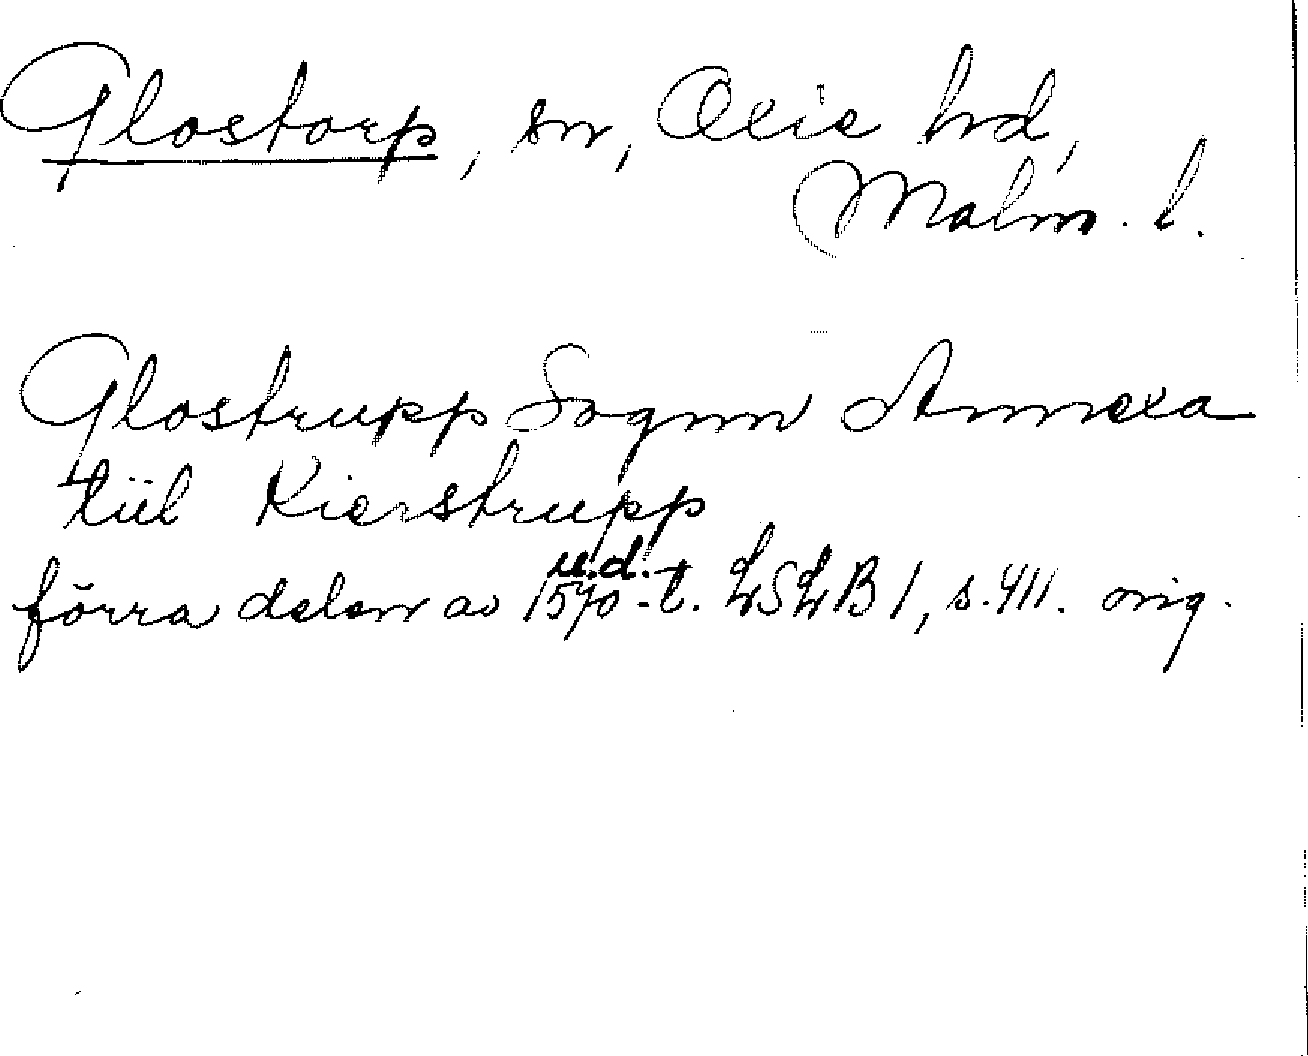 Glostorp, sn, Oxie hd,
Malm. l.
Glostrupp Sognn Annexa
tiil Kierstrupp
u.d.
förra delen av 1570-t. LSLB 1, s. 411. orig.